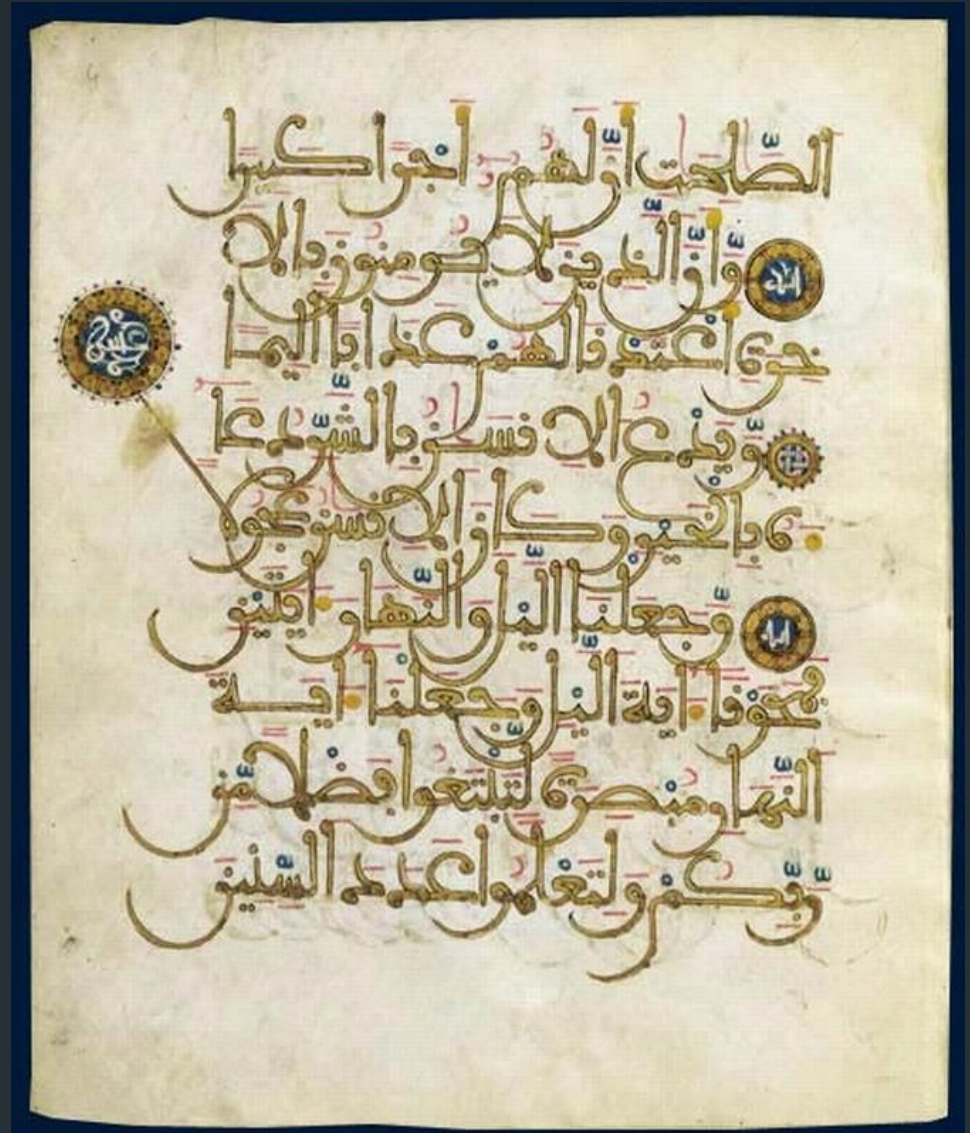 الصَّلِحَتِ أَنَّ لَهُمْ أَجْرًا كَبِيرًا
وَأَنَّ الَّذِينَ لَا يُومِنُونَ بِالَا
خِرَةِ أَعْتَدْنَا لَهُمْ عَذَابًا أَلِيمًا
وَيَدْعُ الِانسَنُ بِالشَّرِّ دُعَا
ءَهُ بِالْخَيْرِ وَكَانَ الِانسَنُ عَجُولًا
وَجَعَلْنَا الَّيْلَ وَالنَّهَارَ ءَايَتَيْنِ
فَمَحَوْنَا ءَايَةَ الَّيْلِ وَجَعَلْنَا ءَايَةَ
النَّهَارِ مُبْصِرَةً لِّتَبْتَغُوا فَضْلًا مِّن
رَّبِّكُمْ وَلِتَعْلَمُوا عَدَدَ السِّنِينَ